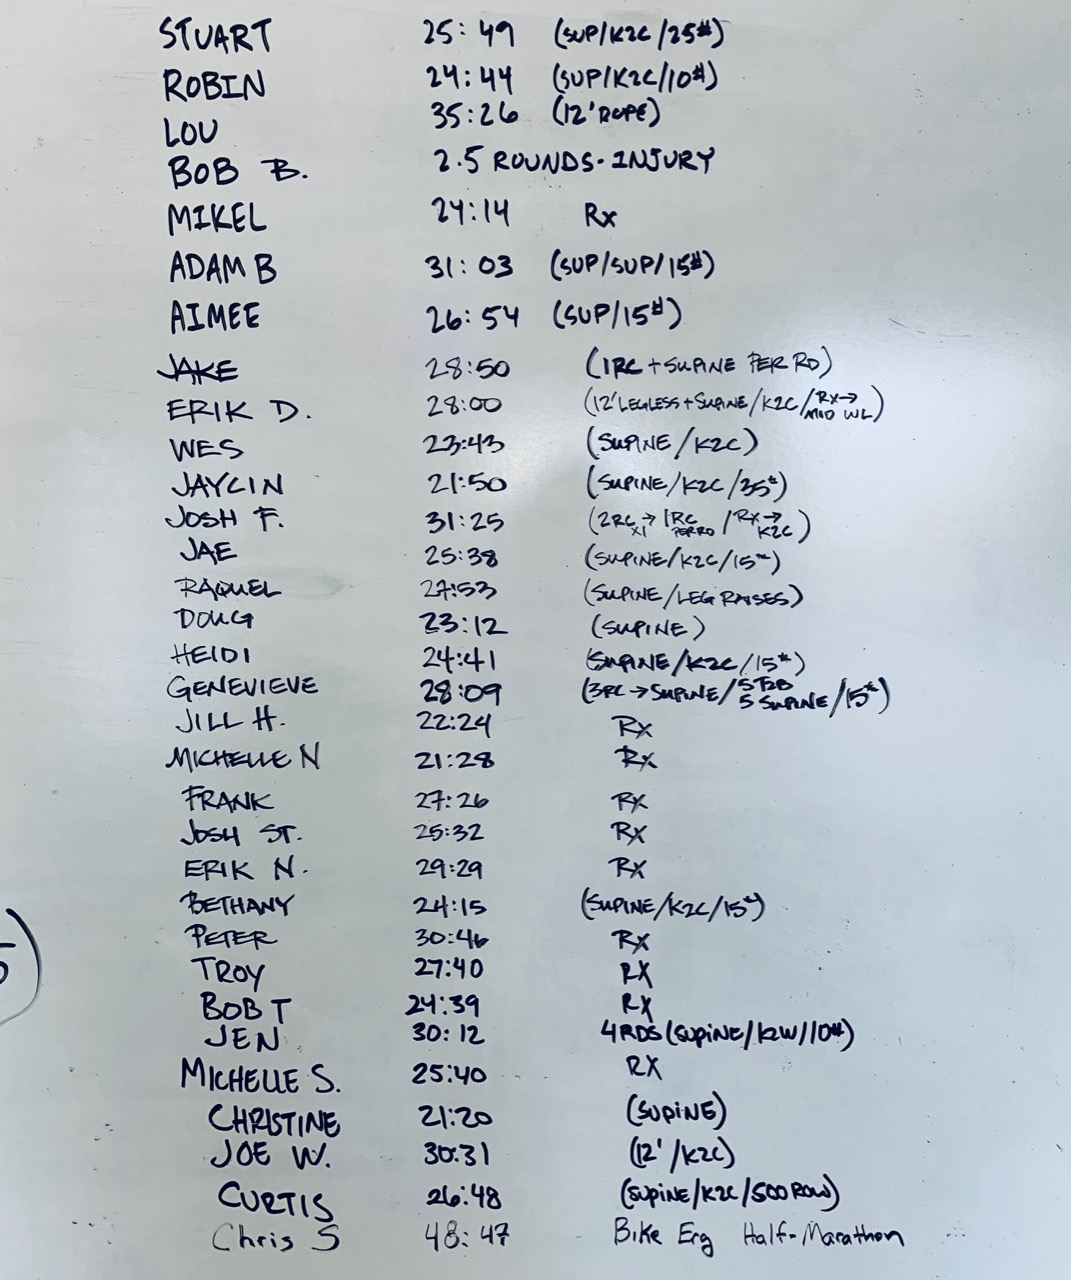 STUART 25:49 (SUP/K2C/25#)
ROBIN 24:44 (SUP/K2C/10#)
LOU 35:26 (12' ROPE)
BOB B. 2.5 ROUNDS - INJURY
MIKEL 24:14 Rx
ADAM B 31:03 (SUP/SUP/15#)
AIMEE 26:54 (SUP/15#)
JAKE 28:50 (1RC + SUPINE PER RD)
ERIK D. 28:00 (12' LEGLESS + SUPINE/K2C/RX→ MID WL)
WES 23:43 (SUPINE/K2C)
JAYLIN 21:50 (SUPINE/K2C/35#)
JOSH F. 31:25 (2RC X1 → 1RC PER RD /RX→ K2C)
JAE 25:38 (SUPINE/K2C/15#)
RAQUEL 27:53 (SUPINE/LEG RAISES)
DOUG 23:12 (SUPINE)
HEIDI 24:41 (SUPINE/K2C/15#)
GENEVIEVE 28:09 (3RC → SUPINE/5 T2B 5 SUPINE/15#)
JILL H. 22:24 RX
MICHELLE N 21:28 RX
FRANK 27:26 RX
JOSH ST. 25:32 RX
ERIK N. 29:29 RX
BETHANY 24:15 (SUPINE/K2C/15#)
PETER 30:46 RX
5)
TROY 27:40 RX
BOB T 24:39 RX
JEN 30:12 4RDS (SUPINE/K2W/10#)
MICHELLE S. 25:40 RX
CHRISTINE 21:20 (SUPINE)
JOE W. 30:31 (12'/K2C)
CURTIS 26:48 (SUPINE/K2C/500 ROW)
Chris S 48:47 Bike Erg Half-Marathon